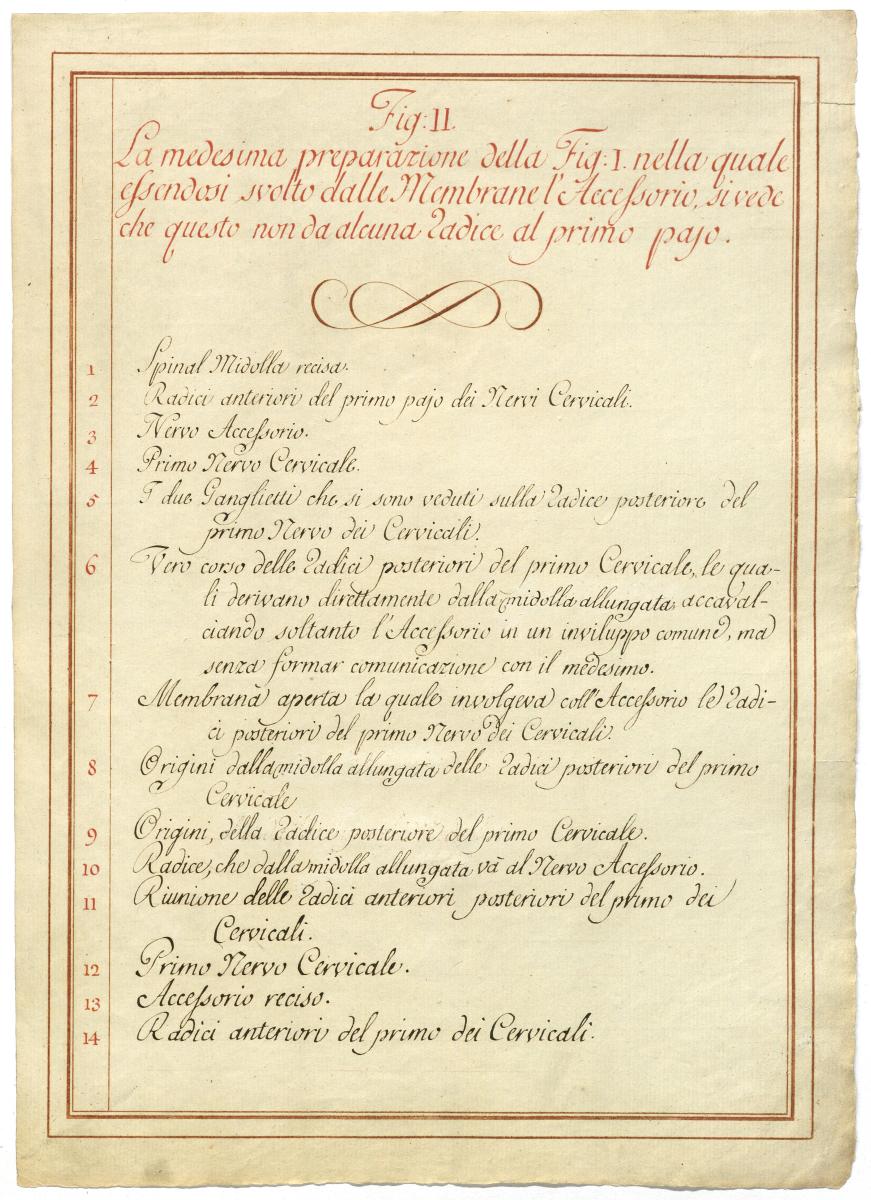 Fig: II.
La medesima preparazione della Fig: I. nella quale
essendosi svolto dalle Membrane l'Accessorio, si vede
che questo non da alcuna Radice al primo pajo.
1 Spinal Midolla recisa.
2 Radici anteriori del primo pajo dei Nervi Cervicali.
3 Nervo Accessorio.
4 Primo Nervo Cervicale.
5 I due Ganglietti che si sono veduti sulla Radice posteriore del
primo Nervo dei Cervicali.
6 Vero corso delle Radici posteriori del primo Cervicale, le qua-
li derivano direttamente dalla midolla allungata accaval-
ciando soltanto l'Accessorio in un inviluppo comune, ma
senza formar comunicazione con il medesimo.
7 Membrana aperta la quale involgeva coll'Accessorio le Radi-
ci posteriori del primo Nervo dei Cervicali.
8 Origini dalla midolla allungata delle Radici posteriori del primo
Cervicale
9 Origini, della Radice posteriore del primo Cervicale.
10 Radice, che dalla midolla allungata và al Nervo Accessorio.
11 Riunione delle Radici anteriori posteriori del primo dei
Cervicali.
12 Primo Nervo Cervicale.
13 Accessorio reciso.
14 Radici anteriori del primo dei Cervicali.